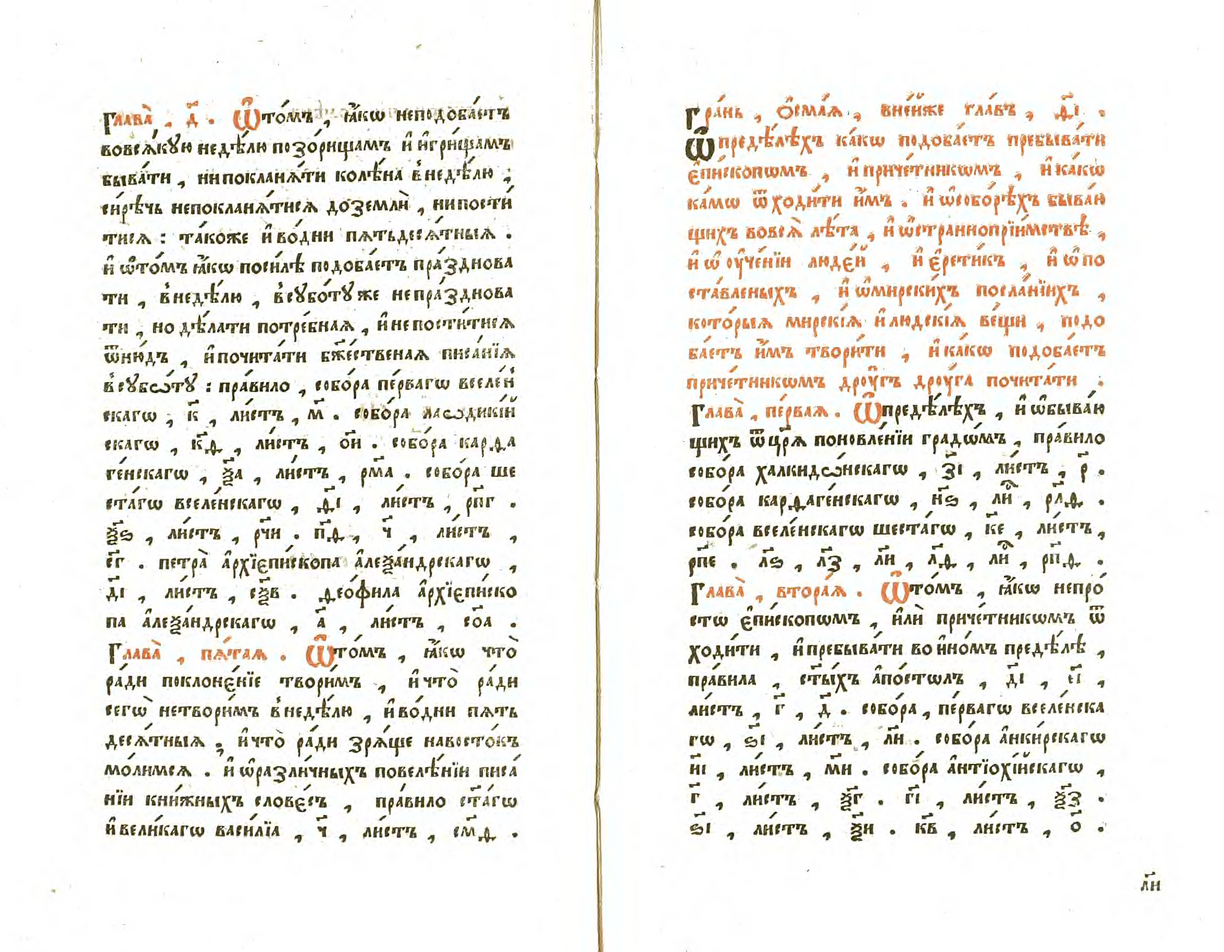 Глава̀ , д҃ . Ѡ҆то́мъ , ꙗ҆́кѡ неподоба́етъ
вовсѧ́кꙋю недѣ́лю позо́рищамъ и҆ и҆гри́щамъ
быва́ти , нипоклонѧ́ти колѣ́на внедѣ́лю ,
си́рѣчь непоклонѧ́тисѧ доземлѝ , нипости́
тисѧ : та́коже и҆ во́дни пѧтьдесѧ́тныѧ .
и҆ ѡ҆то́мъ ꙗ҆́кѡ посилѣ подоба́етъ пра́зднова
ти , внедѣ́лю , всꙋбо́тꙋже непра́зднова
ти , но дѣ́лати потре́бнаѧ , и҆ непости́тисѧ
ѿню́дъ , и҆ почита́ти бж҃е́ственаѧ писа́нїѧ
всꙋбѡ́тꙋ : пра́вило , собо́ра пе́рвагѡ вселе́н
скагѡ , к҃ , ли́стъ , м҃ . собо́ра лаѡдикі́й
скагѡ , к҃ѳ , ли́стъ , о҃и . собо́ра карѳа
ге́нскагѡ , ѯ҃а , ли́стъ , рм҃а . собо́ра ше
ста́гѡ вселе́нскагѡ , ѳ҃і , ли́стъ , рп҃г .
ѯ҃ѕ , ли́стъ , рч҃и . п҃ѳ , ч҃ , ли́стъ ,
с҃г . петра̀ а҆рхїєпи́скопа а҆леѯа́ндрскагѡ ,
д҃і , ли́стъ , сѯ҃в . ѳео́фила а҆рхїєпи́ско
па а҆леѯа́ндрскагѡ , а҃ , ли́стъ , со҃а .
Глава̀ , пѧ́таѧ . Ѡ҆то́мъ , ꙗ҆́кѡ что̀
ра́ди поклоне́нїе твори́мъ , и҆ что̀ ра́ди
сегѡ̀ нетвори́мъ внедѣ́лю , и҆ во́дни пѧть
десѧ́тныѧ , и҆ что̀ ра́ди зрѧ́ще навосто́къ
мо́лимсѧ . и҆ ѡ҆разли́чныхъ повелѣ́нїи писа́
нїи кни́жныхъ слове́съ , пра́вило ст҃а́гѡ
и҆ вели́кагѡ васи́лїа , ч҃ , ли́стъ , см҃ѳ .
Гра́нь , ѻ҆сма́ѧ , вне́йже гла́въ , ѳ҃і .
Ѡ҆предѣ́лѣхъ ка́кѡ подоба́етъ пребыва́ти
є҆пи́скопѡмъ , и҆ при́четникѡмъ , и҆ ка́кѡ
ка́мѡ ѿходи́ти и҆̀мъ . и҆ ѡ҆собо́рѣхъ быва́ю
щихъ вовсѧ̀ лѣ́та , и҆ ѡ҆страннопрїи́мствѣ ,
и҆ ѡ҆ ᲂу҆че́нїи люде́й , и҆ є҆рети́къ , и҆ ѡ҆ по
ста́вленыхъ , и҆ ѡ҆мирски́хъ посла́нїихъ ,
кото́рыѧ мирскі́ѧ и҆ людскі́ѧ ве́щи , подо
ба́етъ и҆̀мъ твори́ти , и҆ ка́кѡ подоба́етъ
при́четникѡмъ дрᲂу́гъ дрᲂу́га почита́ти .
Глава̀ , пе́рваѧ . Ѡ҆предѣ́лѣхъ , и҆ ѡ҆быва́ю
щихъ ѿцр҃ѧ̀ поновле́нїи градѡ́мъ , пра́вило
собо́ра халкидѡ́нскагѡ , з҃і , ли́стъ , р҃ .
собо́ра карѳаге́нскагѡ , н҃ѕ , ли́ , рл҃ѳ .
собо́ра вселе́нскагѡ шеста́гѡ , к҃е , ли́стъ ,
рп҃е . л҃ѕ , л҃з , л҃и , л҃ѳ , ли́ , рп҃ѳ .
Глава̀ , втора́ѧ . Ѡ҆то́мъ , ꙗ҆́кѡ непро́
стѡ є҆пи́скопѡмъ , и҆лѝ при́четникѡмъ ѿ
ходи́ти , и҆ пребыва́ти во и҆но́мъ предѣ́лѣ ,
пра́вила , ст҃ы́хъ а҆по́столъ , д҃і , є҃і ,
ли́стъ , г҃ , д҃ . собо́ра , пе́рвагѡ вселе́нска
гѡ , ѕ҃і , ли́стъ , л҃и . собо́ра а҆нки́рскагѡ
и҃і , ли́стъ , м҃и . собо́ра а҆нтїохі́йскагѡ ,
г҃ , ли́стъ , ѯ҃г . г҃і , ли́стъ , ѯ҃з .
ѕ҃і , ли́стъ , ѯ҃и . к҃в , ли́стъ , о҃ .
л҃и